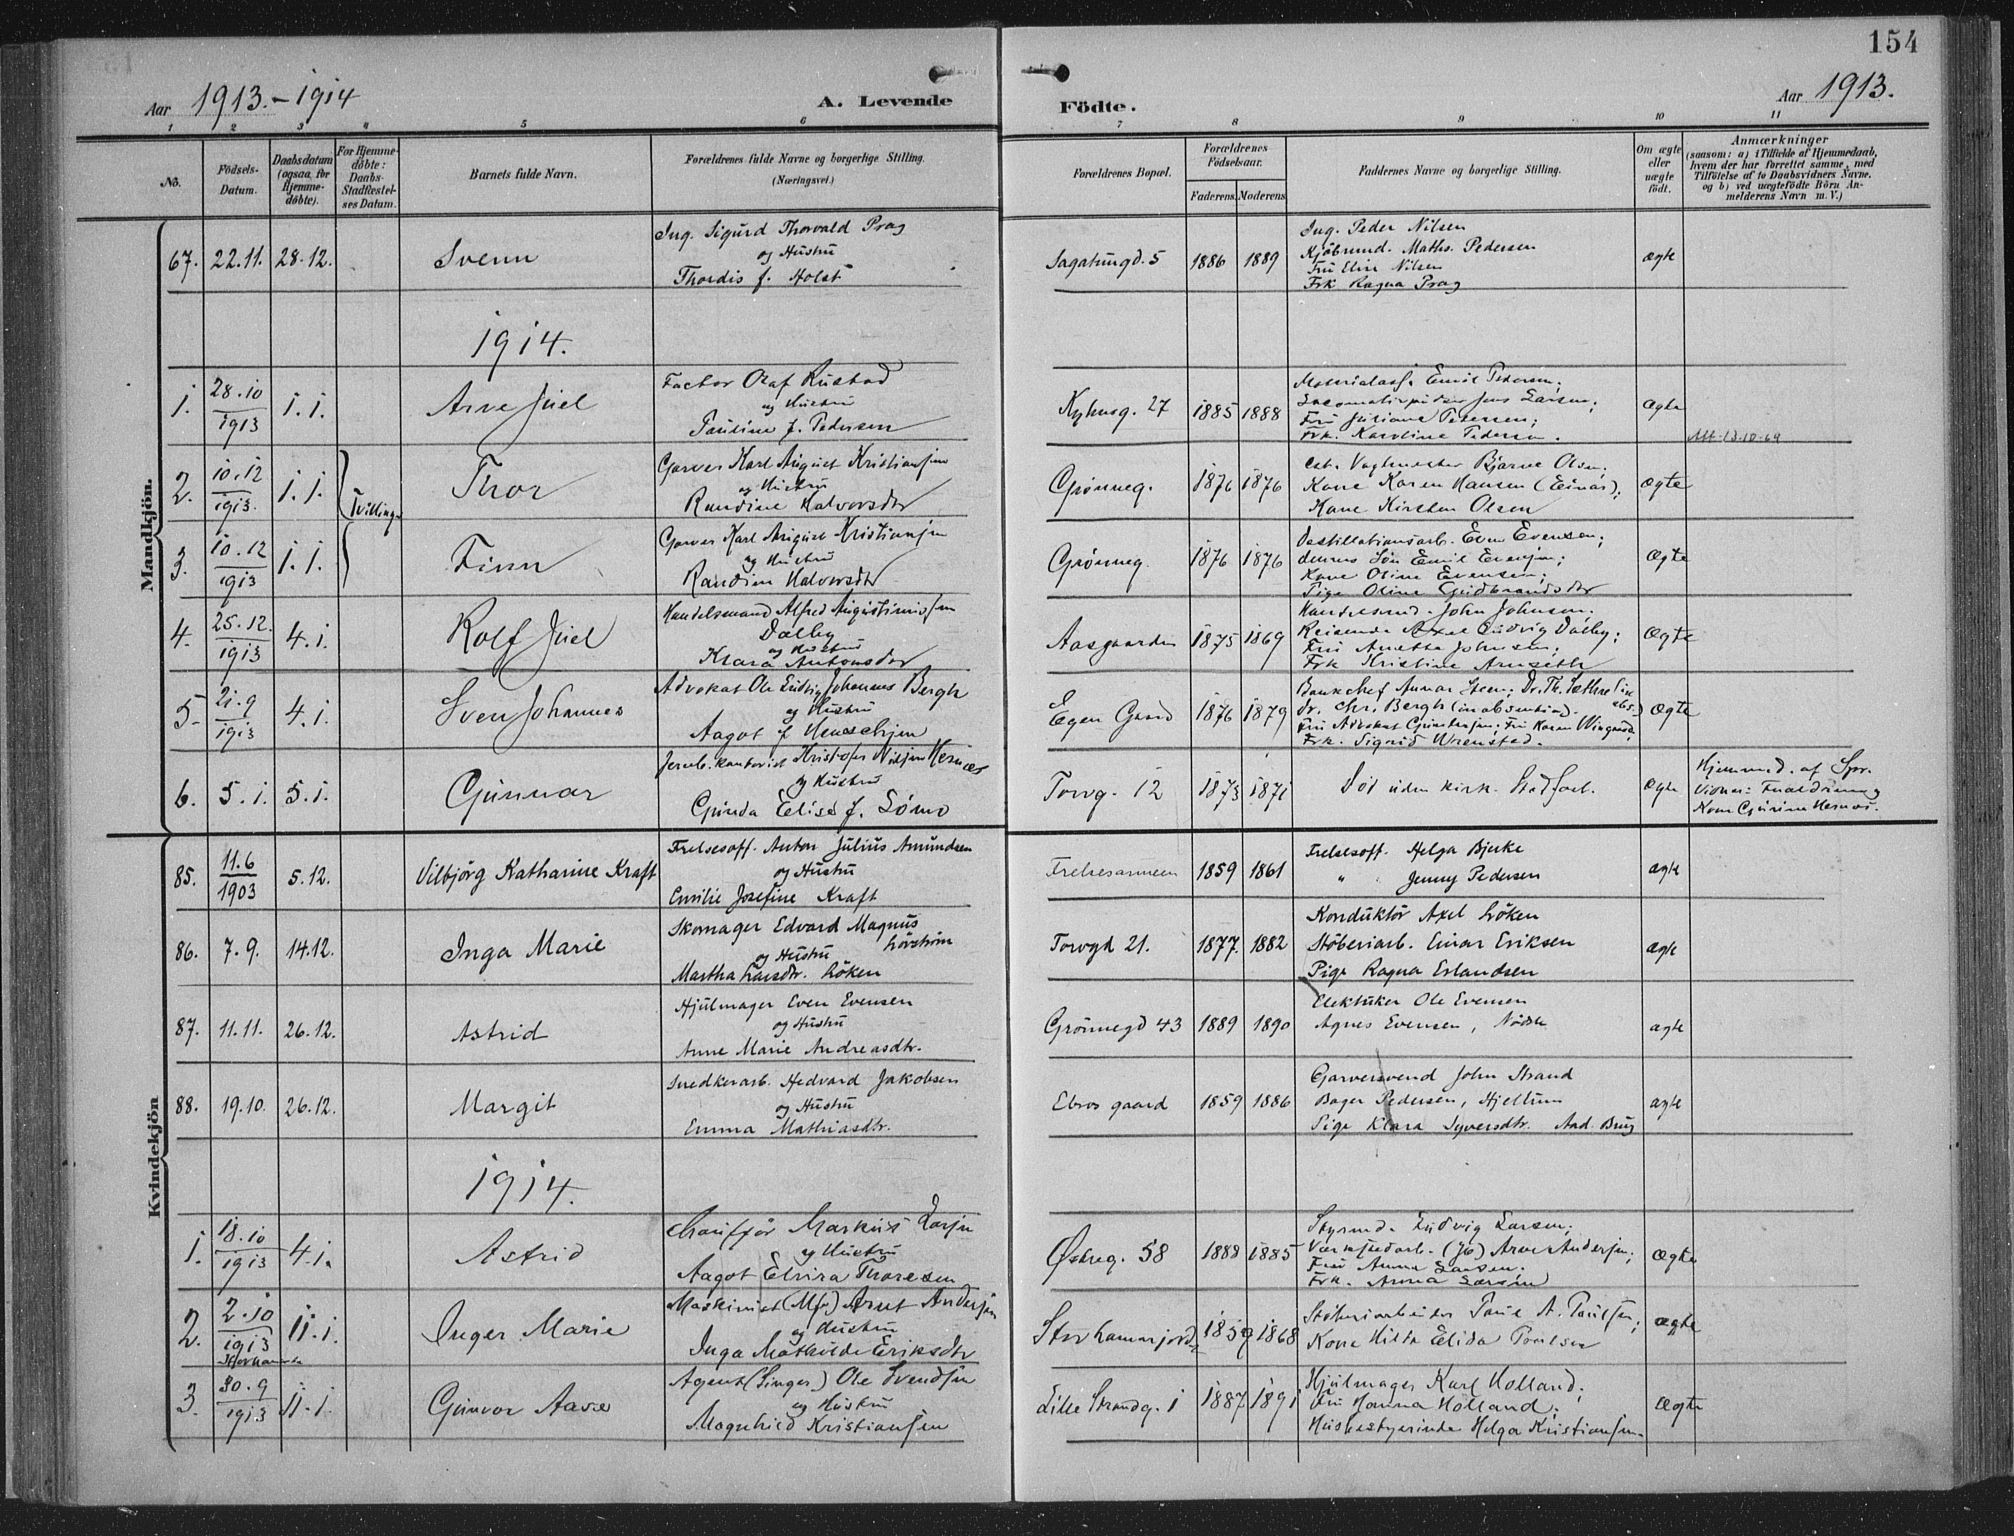 154
Aar 1913.-1914
A. Levende
Födte.
Aar 1913.
1 2 3 4 5 6 7 8 9 10 11
No.
Födsels-Datum.
Daabsdatum (ogsaa for Hjemme-döbte).
For Hjemme-döbte: Daabs-Stadfæstel-ses Datum.
Barnets fulde Navn.
Forældrenes fulde Navne og borgerlige Stilling.
(Næringsvei.)
Forældrenes Bopæl.
Forældrenes Födselsaar.
Faderens. Moderens.
Faddernes Navne og borgerlige Stilling.
Om ægte eller uægte födt.
Anmærkninger
(saasom: a) i Tilfælde af Hjemmedaab, hvem der har forrettet samme, med Tilföielse af to Daabsvidners Navne. og b) ved uægtefödte Börn An-melderens Navn m. V.)
Mandkjön.
67. 22.11. 28.12. Svenn
Ing. Sigurd Thorvald Prag
og Hustru
Thordis f. Holst
Sagatungd. 5 1886 1889
Ing. Peder Nilsen
Kjöbmd. Maths. Pedersen
Fru Elise Nilsen
Frk Ragna Prag
ægte
1914.
1. 28.10 1913 1.1. Arve Juel
Factor Olaf Rustad
og Hustru
Pauline f. Pedersen
Kyhnsg. 27 1885 1888
Emil Pedersen;
Jens Larsen;
Fru Juliane Petersen;
Frk. Karoline Pedersen.
Ægte
Att. 13-10-69
2. 10.12 1913. 1.1. Tvillinger Thor
Garver Karl August Kristiansen
og Hustru
Randine Halvorsdtr
Grönneg. 1876 1876
Bjarne Olsen;
Kone Karen Hansen (Einar);
Kone Kirsten Olsen
Ægte
3. 10.12 1913 1.1. Finn
Garver Karl August Kristiansen
og Hustru
Randine Halvorsdtr
Grönneg. 1876 1876
Destillationsarb. Even Evensen;
dennes Sön Emil Evensen;
Kone Oline Evensen;
Pige Oline Gudbrandsdtr
Ægte
4. 25.12. 1913 4.1. Rolf Juel
Handelsmand Alfred Augustinussen
Dalby
og Hustru
Klara Antonsdtr
Aasgaarden 1875 1869
Handelsmd. John Johnsen;
Reisende Axel Ludvig Dalby;
Fru Anette Johnsen;
Frk Kristine Arnseth
Ægte
5. 21.9 1913 4.1. Sven Johannes
Advokat Ole Ludvig Johannes Bergh
og Hustru
Aagot f
Egen Gaard 1876 1879
Bankchef Gunnar Steen; Dr. Th.
Dr. Chr. Bergh (in absentia).
Fru Advokat; Fru Karen Wingaard,
Frk. Sigrid Wrensted.
Ægte
6. 5.1. 5.1. Gunnar
Jernb. kontorist Kristofer Nilsen Hernæs
og Hustru
Gunda Elise f. Lömo
Torvg. 12 1873 1871
Död uden kirk. Stadfæst.
Ægte
Hjemmed. af Spr.
Vidner: Forældrene og
Kone Gurine Hernæs.
Kvindekjön
85. 11.6 1903 5.12. Vilbjörg Katharine Kraft
Frelsesoff. Anton Julius Amundsen
og Hustru
Emilie Josefine Kraft
Frelsesarmeen 1859 1861
Frelsesoff. Helga Bjerke
" Jenny Pedersen
ægte
86. 7.9. 14.12. Inga Marie
Skomager Edvard Magnus
Lövström
og Hustru
Martha Larsdtr. Löken
Torvgd 21. 1877. 1882
Konduktör Axel Löken
Stöberiarb. Einar Eriksen
Pige Ragna Erlandsen
ægte
87. 11.11. 26.12. Astrid
Hjulmager Even Evensen
og Hustru
Anne Marie Andreasdtr.
Grönnegd 43 1889 1890
Elektriker Ole Evensen
Agnes Evensen,
ægte
88. 19.10. 26.12. Margit
Snedkerarb. Hedvard Jakobsen
og Hustru
Emma Mathiasdtr.
Ebros gaard 1859 1886
Garversvend John Strand
Bager Pedersen, Hjellum
Pige Klara Syversdtr. Aad. Brug
ægte
1914.
1. 18.10 1913 4.1. Astrid
Chaufför Markus Larsen
og Hustru
Aagot Elvira Thoresen
Østreg. 58 1888 1885
Styrmd. Ludvig Larsen;
Værkstedarb. Arne Andersen;
Fru Anna Larsen.
Frk. Anna Larsen
Ægte
2. 2.10 1913 11.1. Inger Marie
Maskinist Arnt Andersen
og Hustru
Inga Mathilde Eriksdtr
Storhamarjordet 1859 1868
Stöberiarbeider Paul A. Paulsen;
Kone Hilda Elida Paulsen
Ægte
3. 30.9 1913 11.1. Gunvor Aase
Agent (Singer) Ole Svendsen
og Hustru
Magnhild Kristiansen
Lille Strandg. 1 1887 1891
Hjulmager Karl Holland;
Fru Hanna Holland;
Husbestyrerinde Helga Kristiansen.
Ægte